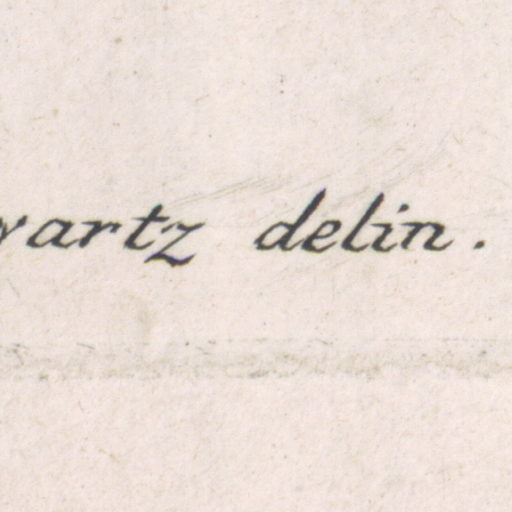 wartz delin.